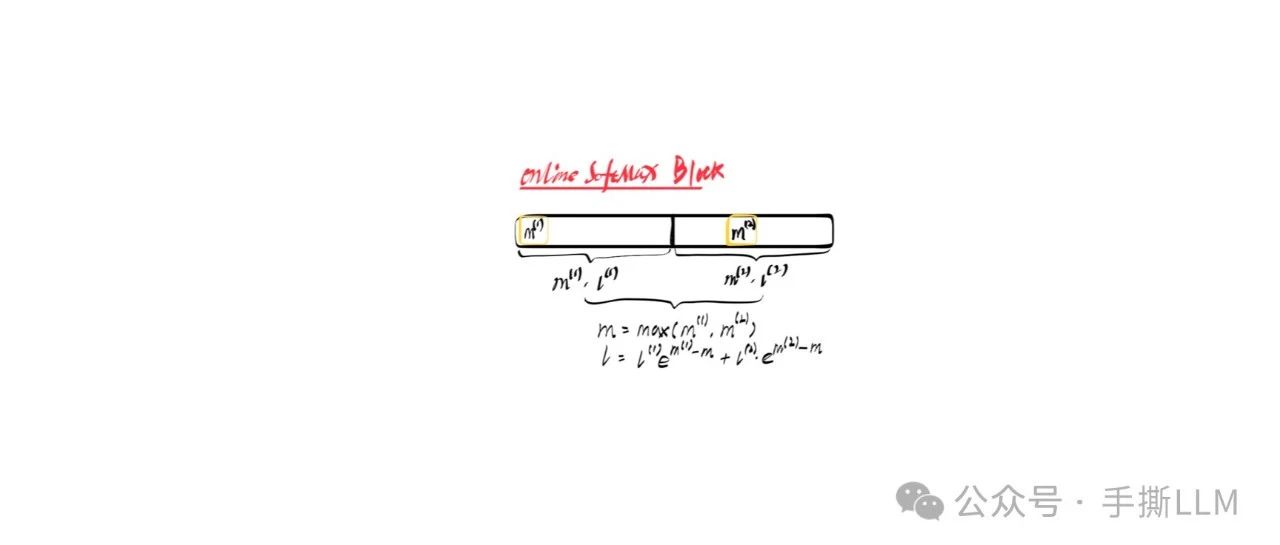 online Softmax Block
m^(1) m^(2)
m^(1), l^(1) m^(2), l^(2)
m = max(m^(1), m^(2))
l = l^(1) e^{m^(1)-m} + l^(2) · e^{m^(2)-m}
公众号 · 手撕LLM